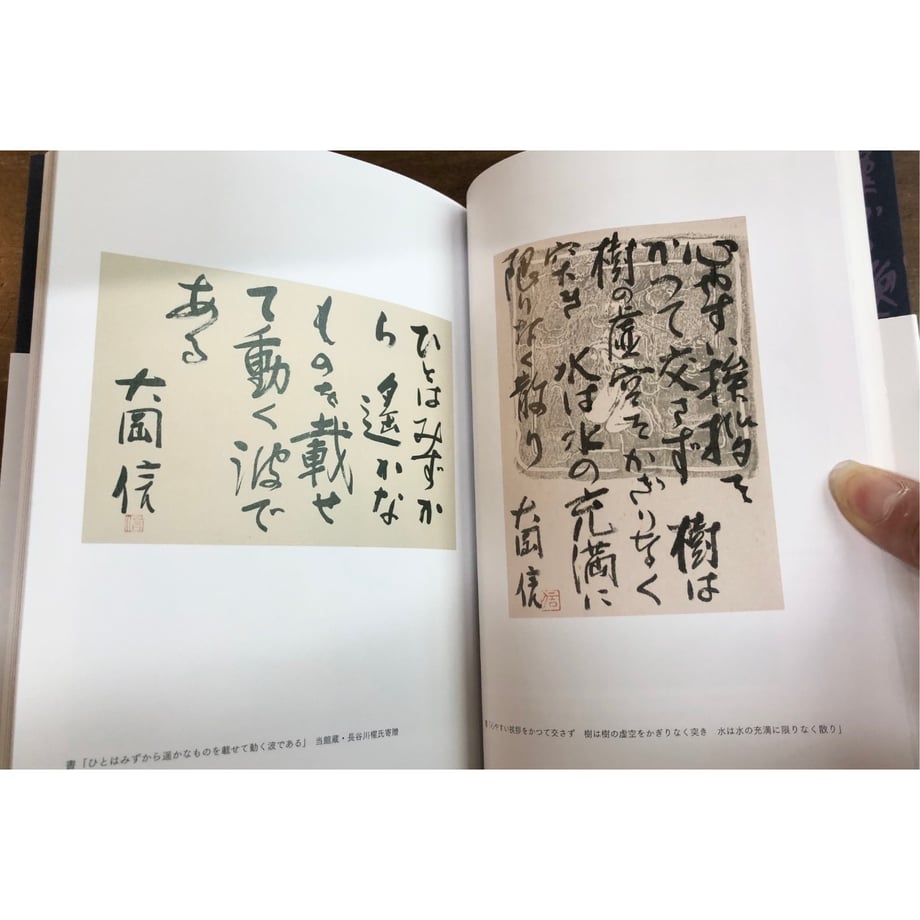 心やすい挨拶を
かつて交さず 樹は
樹の虚空をかぎりなく
突き 水は水の充満に
限りなく散り
大岡信
書「心やすい挨拶をかつて交さず 樹は樹の虚空をかぎりなく突き 水は水の充満に限りなく散り」
ひとはみずか
ら 遥かな
ものを載せ
て動く波で
ある
大岡信
書「ひとはみずから遥かなものを載せて動く波である」 当館蔵・長谷川櫂氏寄贈